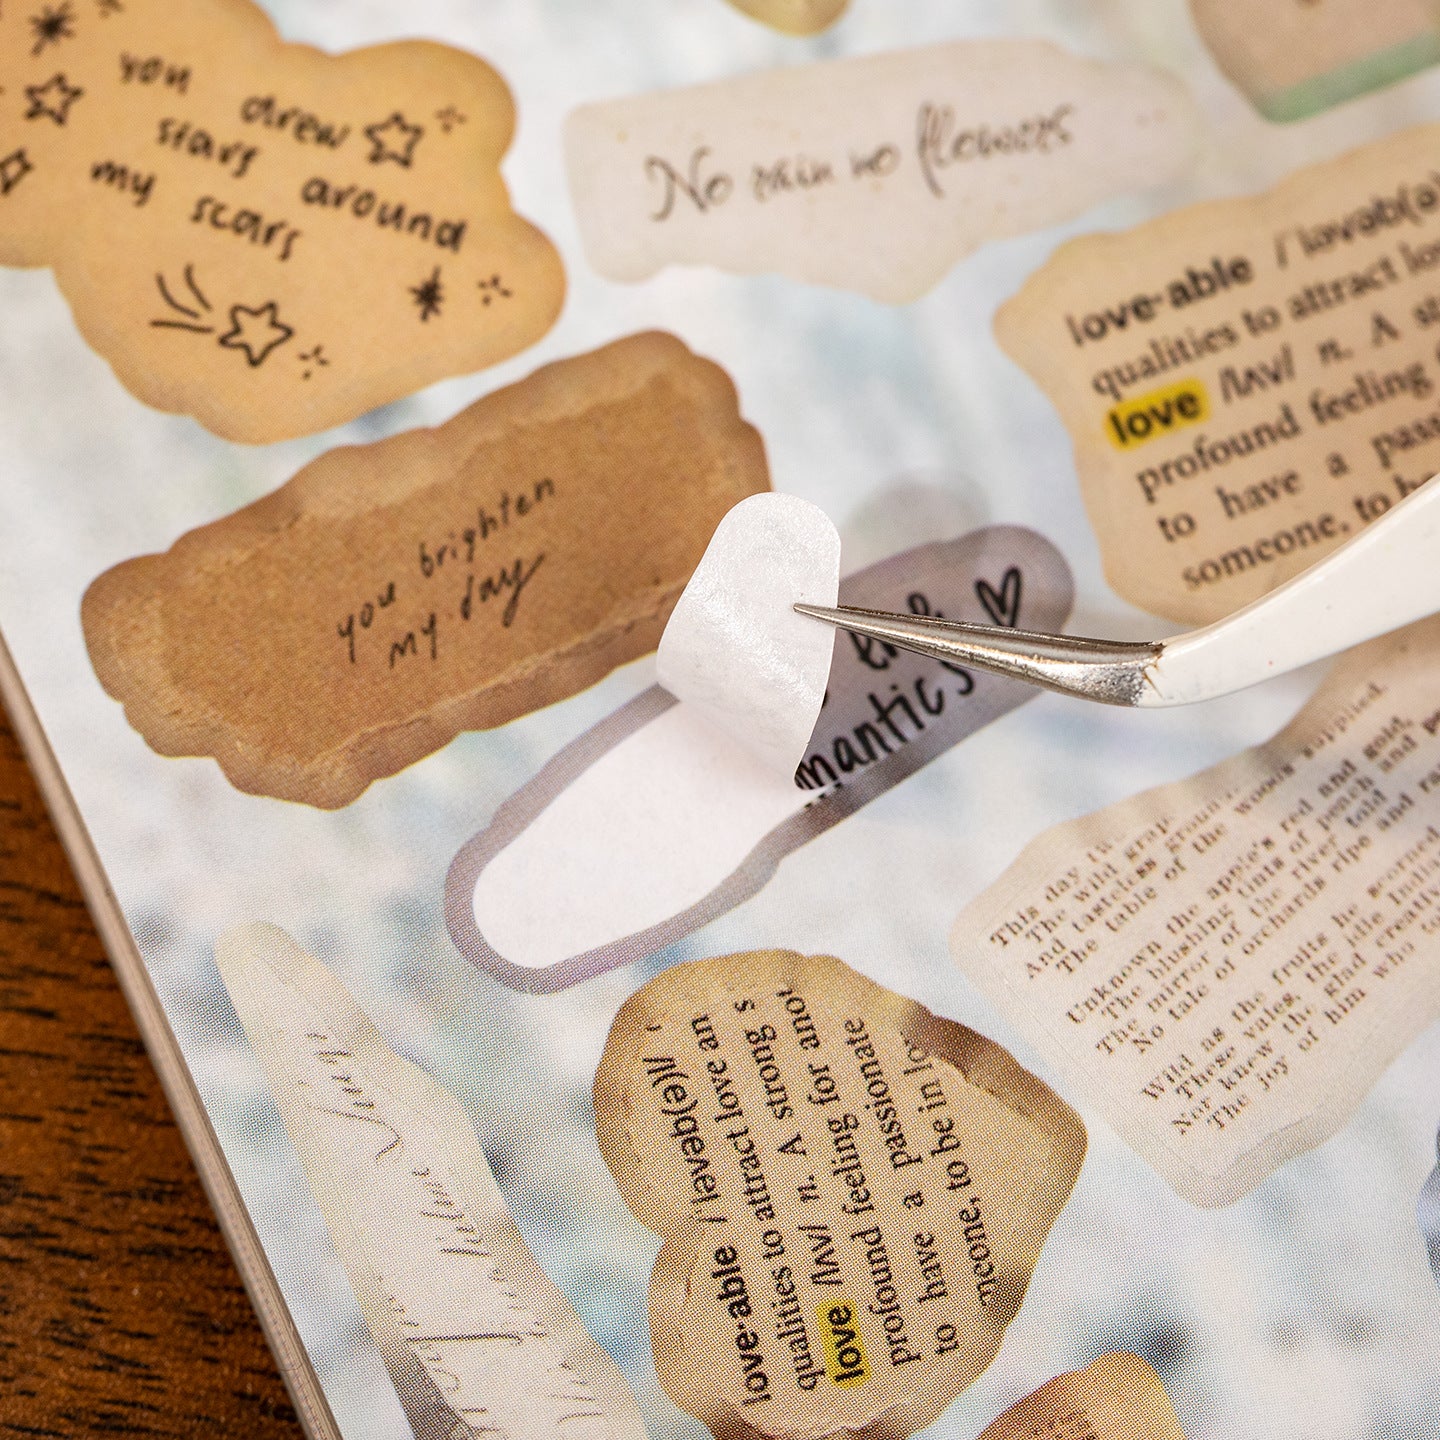 you drew
stars around
my scars
No rain no flowers
love·able / lovab(ə)
qualities to attract lov
love /lʌv/ n. A st
profound feeling
to have a pass
someone, to be
you brighten
my day
mantics
This day
The wild grap
And tasteless ground
The table of the woods supplied.
Unknown the apple's red and gold,
The blushing tints of peach and
The mirror of the river told
No tale of orchards ripe and
Wild as the fruits he scorned
These vales, the idle Indi
Nor knew the glad creati
The joy of him who to
love·able / ləvəb(ə)l/
qualities to attract love an
love /lʌv/ n. A strong s
profound feeling for anot
to have a passionate
meone, to be in lov